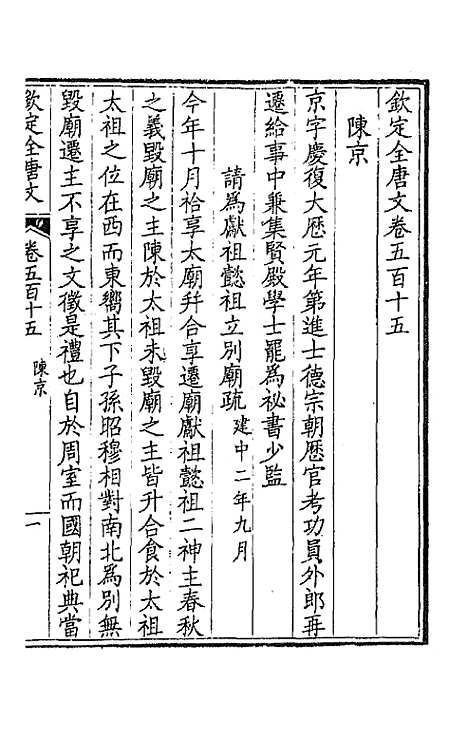 欽定全唐文卷五百十五
陳京
京字慶復大厯元年第進士德宗朝厯官考功員外郎再
遷給事中兼集賢殿學士罷為祕書少監
請為獻祖懿祖立別廟疏 建中二年九月
今年十月祫享太廟幷合享遷廟獻祖懿祖二神主春秋
之義毀廟之主陳於太祖未毀廟之主皆升合食於太祖
太祖之位在西而東嚮其下子孫昭穆相對南北為別無
毀廟遷主不享之文徵是禮也自於周室而國朝祀典當
欽定全唐文 卷五百十五 陳京 一